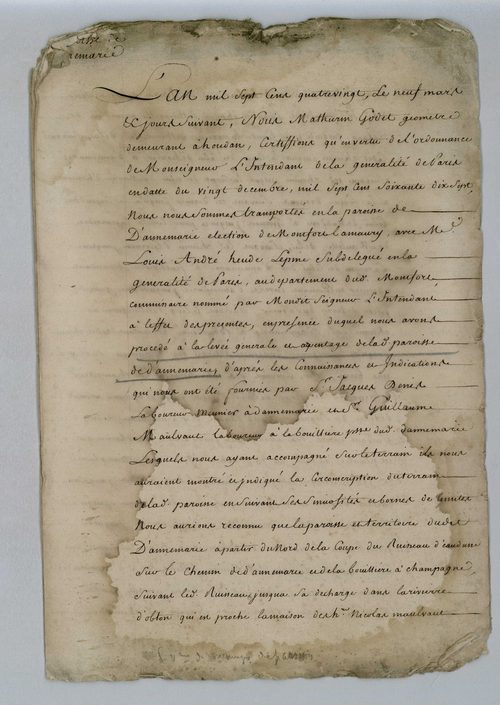 L'an mil sept cens quatrevingt, Le neuf mars
& jours suivant, Nous Mathurin Godet geometre
demeurant à houdan, Certiffions qu'en vertu de l'ordonnance
de Monseigneur L'Intendant de la generalité de Paris
en datte du vingt decembre, mil sept Cent soixante dix sept,
Nous nous sommes transportés en la paroisse de
D'annemarie election de Montfort Lamaury, avec M.
Louis André heude Lepine Subdelegué en la
generalité de Paris, au departement dud. Montfort,
Commissaire nommé par Mondit Seigneur L'Intendant
à l'effet des presentes, en presence duquel nous avons
procedé à la levée generale et arpentage de lad. paroisse
de d'annemarie, d'après les Connaissances et Indications
qui nous ont été fournies par S. Jacques Denis
Laboureur Meunier à d'annemarie et S. Guillaume
Maulvaut laboureur à la bouittiere psse dud. d'annemarie
Lesquels nous ayant accompagné sur le terrain ils nous
auraient montré et Indiqué la Circonscription du terrain
de lad. paroisse en suivant ses sinuosités et bornes de limites
Nous aurions reconnu que la paroisse et territoire dudit
D'annemarie à partir du Nord de la Coupe du Ruisseau
sur le Chemin de d'annemarie et de la bouittiere à champagne
suivant led. Ruisseau jusqua sa decharge dans la riviere
d'obton qui en proche la maison des h. Nicolas maulvaut